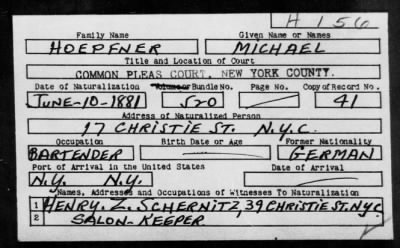 H 156
Family Name Given Name or Names
HOEPFNER MICHAEL
Title and Location of Court
COMMON PLEAS COURT, NEW YORK COUNTY.
Date of Naturalization Volume or Bundle No. Page No. Copy of Record No.
JUNE-10-1881 520 41
Address of Naturalized Person
17 CHRISTIE ST. N.Y.C.
Occupation Birth Date or Age Former Nationality
BARTENDER GERMAN
Port of Arrival in the United States Date of Arrival
N.Y. N.Y.
Names, Addresses and Occupations of Witnesses To Naturalization
1 HENRY. Z. SCHERNITZ, 39 CHRISTIE ST. N.Y.C
2 SALON-KEEPER